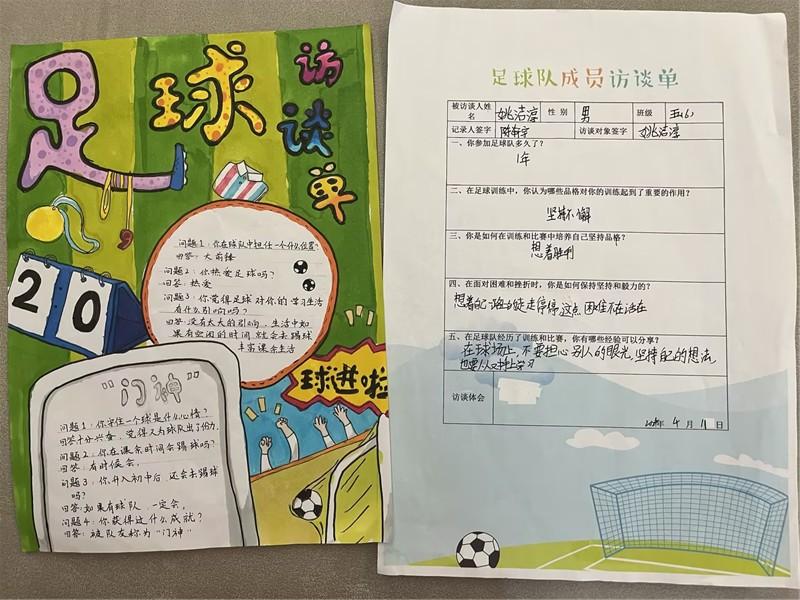 足球
访谈单
20
问题1：你在球队中担任一个什么位置？
回答：大前锋
问题2：你热爱足球吗？
回答：热爱
问题3：你觉得足球对你的学习生活
有什么影响吗？
回答：没有太大的影响，生活中如
果有空闲的时间就会去踢球
丰富课余生活
球进啦
“门神”
问题1：你守住一个球是什么心情？
回答：十分兴奋，觉得又为球队出了份力
问题2：你在课余时间会踢球吗？
回答：有时候会，
问题3：你升入初中后，还会去踢球
吗？
回答：如果有球队，一定会，
问题4：你获得过什么成就？
回答：被队友称为“门神”
足球队成员访谈单
被访谈人姓名 姚洁淳 性别 男 班级
记录人签字 访谈对象签字 姚洁淳
一、你参加足球队多久了？
1年
二、在足球训练中，你认为哪些品格对你的训练起到了重要的作用？
坚持不懈
三、你是如何在训练和比赛中培养自己坚持品格？
想着胜利
四、在面对困难和挫折时，你是如何保持坚持和毅力的？
想着自己一路的走走停停，这点困难不存在
五、在足球队经历了训练和比赛，你有哪些经验可以分享？
在球场上，不要担心别人的眼光，坚持自己的想法，
也要从中学习
访谈体会
4月11日